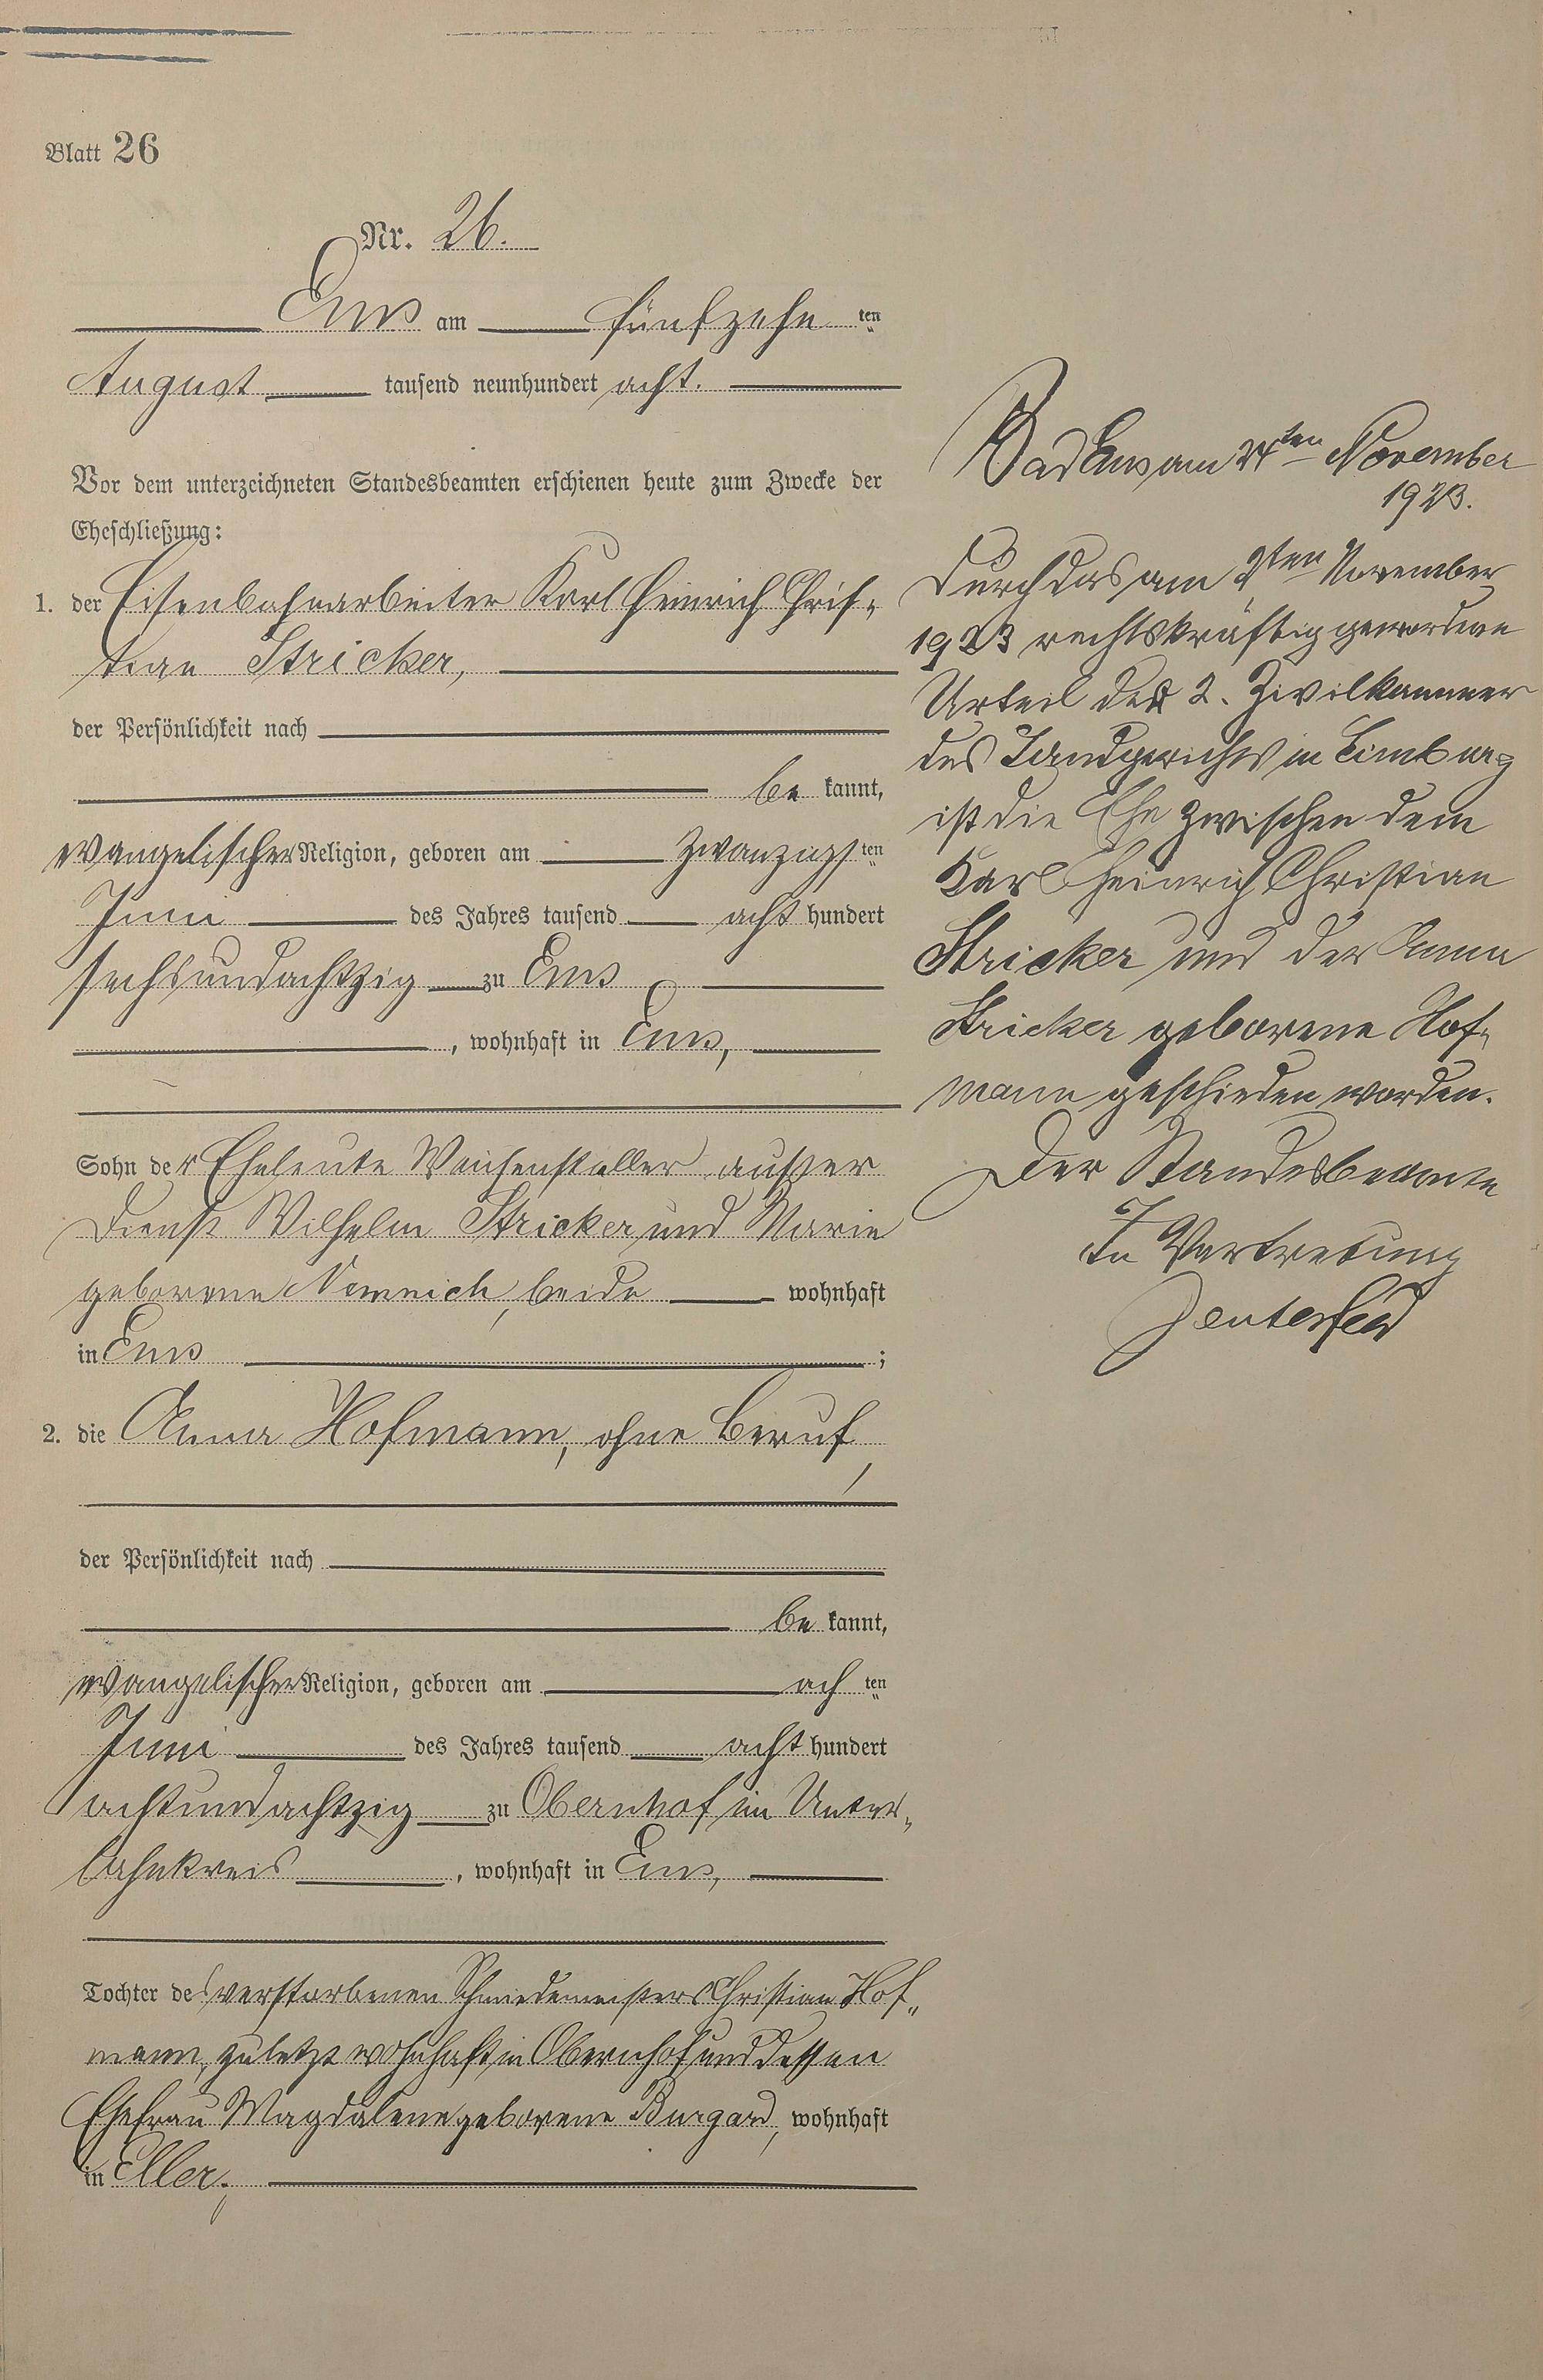 Blatt 26
Nr. 26.
Ems am fünfzehn ten
August tausend neunhundert acht.
Vor dem unterzeichneten Standesbeamten erschienen heute zum Zwecke der
Eheschließung:
1. der Eisenbahnarbeiter Karl Heinrich Chris-
tian Stricker,
der Persönlichkeit nach
be kannt,
evangelischer Religion, geboren am zwanzigs ten
Juni des Jahres tausend acht hundert
sechsundachtzig zu Ems
, wohnhaft in Ems,
Sohn der Eheleute Weichensteller außer
Dienst Wilhelm Stricker und Marie
geborene Nemnich, beide wohnhaft
in Ems ;
2. die Anna Hofmann, ohne Beruf,
der Persönlichkeit nach
be kannt,
evangelischer Religion, geboren am ach ten
Juni des Jahres tausend acht hundert
achtundachtzig zu Obernhof im Unter-
lahnkreis , wohnhaft in Ems,
Tochter des verstorbenen Schmiedemeisters Christian Hof-
mann, zuletzt wohnhaft in Obernhof und dessen
Ehefrau Magdalene geborene Burgard, wohnhaft
in Eller.
Bad Ems am 24ten November
1923.
Durch das am 9ten November
1923 rechtskräftig gewordene
Urteil der 2. Zivilkammer
des Landgerichts in Limburg
ist die Ehe zwischen dem
Karl Heinrich Christian
Stricker und der Anna
Stricker geborene Hof-
mann geschieden worden.
Der Standesbeamte
In Vertretung